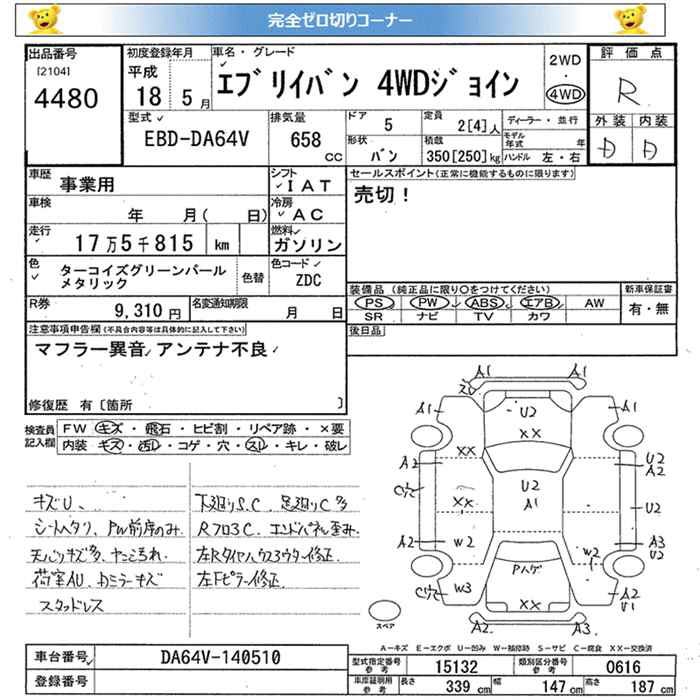 完全ゼロ切りコーナー
出品番号
[2104]
4480
初度登録年月
平成
18 5月
車名・グレード
エブリイバン 4WDジョイン
2WD
・
4WD
評価点
R
型式
EBD-DA64V
排気量
658
CC
ドア 5
形状 バン
定員 2[4]人
積載 350[250]kg
ディーラー・並行
モデル年式 年
ハンドル 左・右
外装 内装
D D
車歴 事業用
シフト
IAT
車検 年 月( 日)
冷房
AC
走行
17万5千815 km
燃料
ガソリン
色
ターコイズグリーンパール
メタリック
色替
色コード
ZDC
R券 9,310円
名変通知期限 月 日
セールスポイント(正常に機能するものに限ります)
売切!
装備品(純正品に限り○をつけてください)
PS PW ABS エアB AW
SR ナビ TV カワ
新車保証書
有・無
後日品
注意事項申告欄(不具合内容等は具体的に記入して下さい)
マフラー異音 アンテナ不良
修復歴 有〔箇所 〕
検査員
記入欄
FW キズ・飛石・ヒビ割・リペア跡・×要
内装 キズ・汚レ・コゲ・穴・スレ・キレ・破レ
キズU、
シートヘタリ、PW前席のみ、
天バリキズ多、ヤニ汚れ、
荷室AU、Dミラーキズ
スタッドレス
下廻りS.C 足廻りC多
Rフロ3C、エンドパネル歪み、
左Rタイヤハウスアウター修正、
左Fピラー修正、
A1 A1
A1 A1
U2
XX
A2 XX U2
A2
U2
A1
XX U2
A2 W2 W2 A3
U2
Pハゲ
W3 XX A2
U1
A2 A3
スペア
A－キズ E－エクボ U－凹み W－補修跡 S－サビ C－腐食 XX－交換済
車台番号 DA64V-140510
登録番号
型式指定番号
参考
15132
類別区分番号
参考
0616
車庫証明用
参考
長さ 339cm 幅 147cm 高さ 187cm